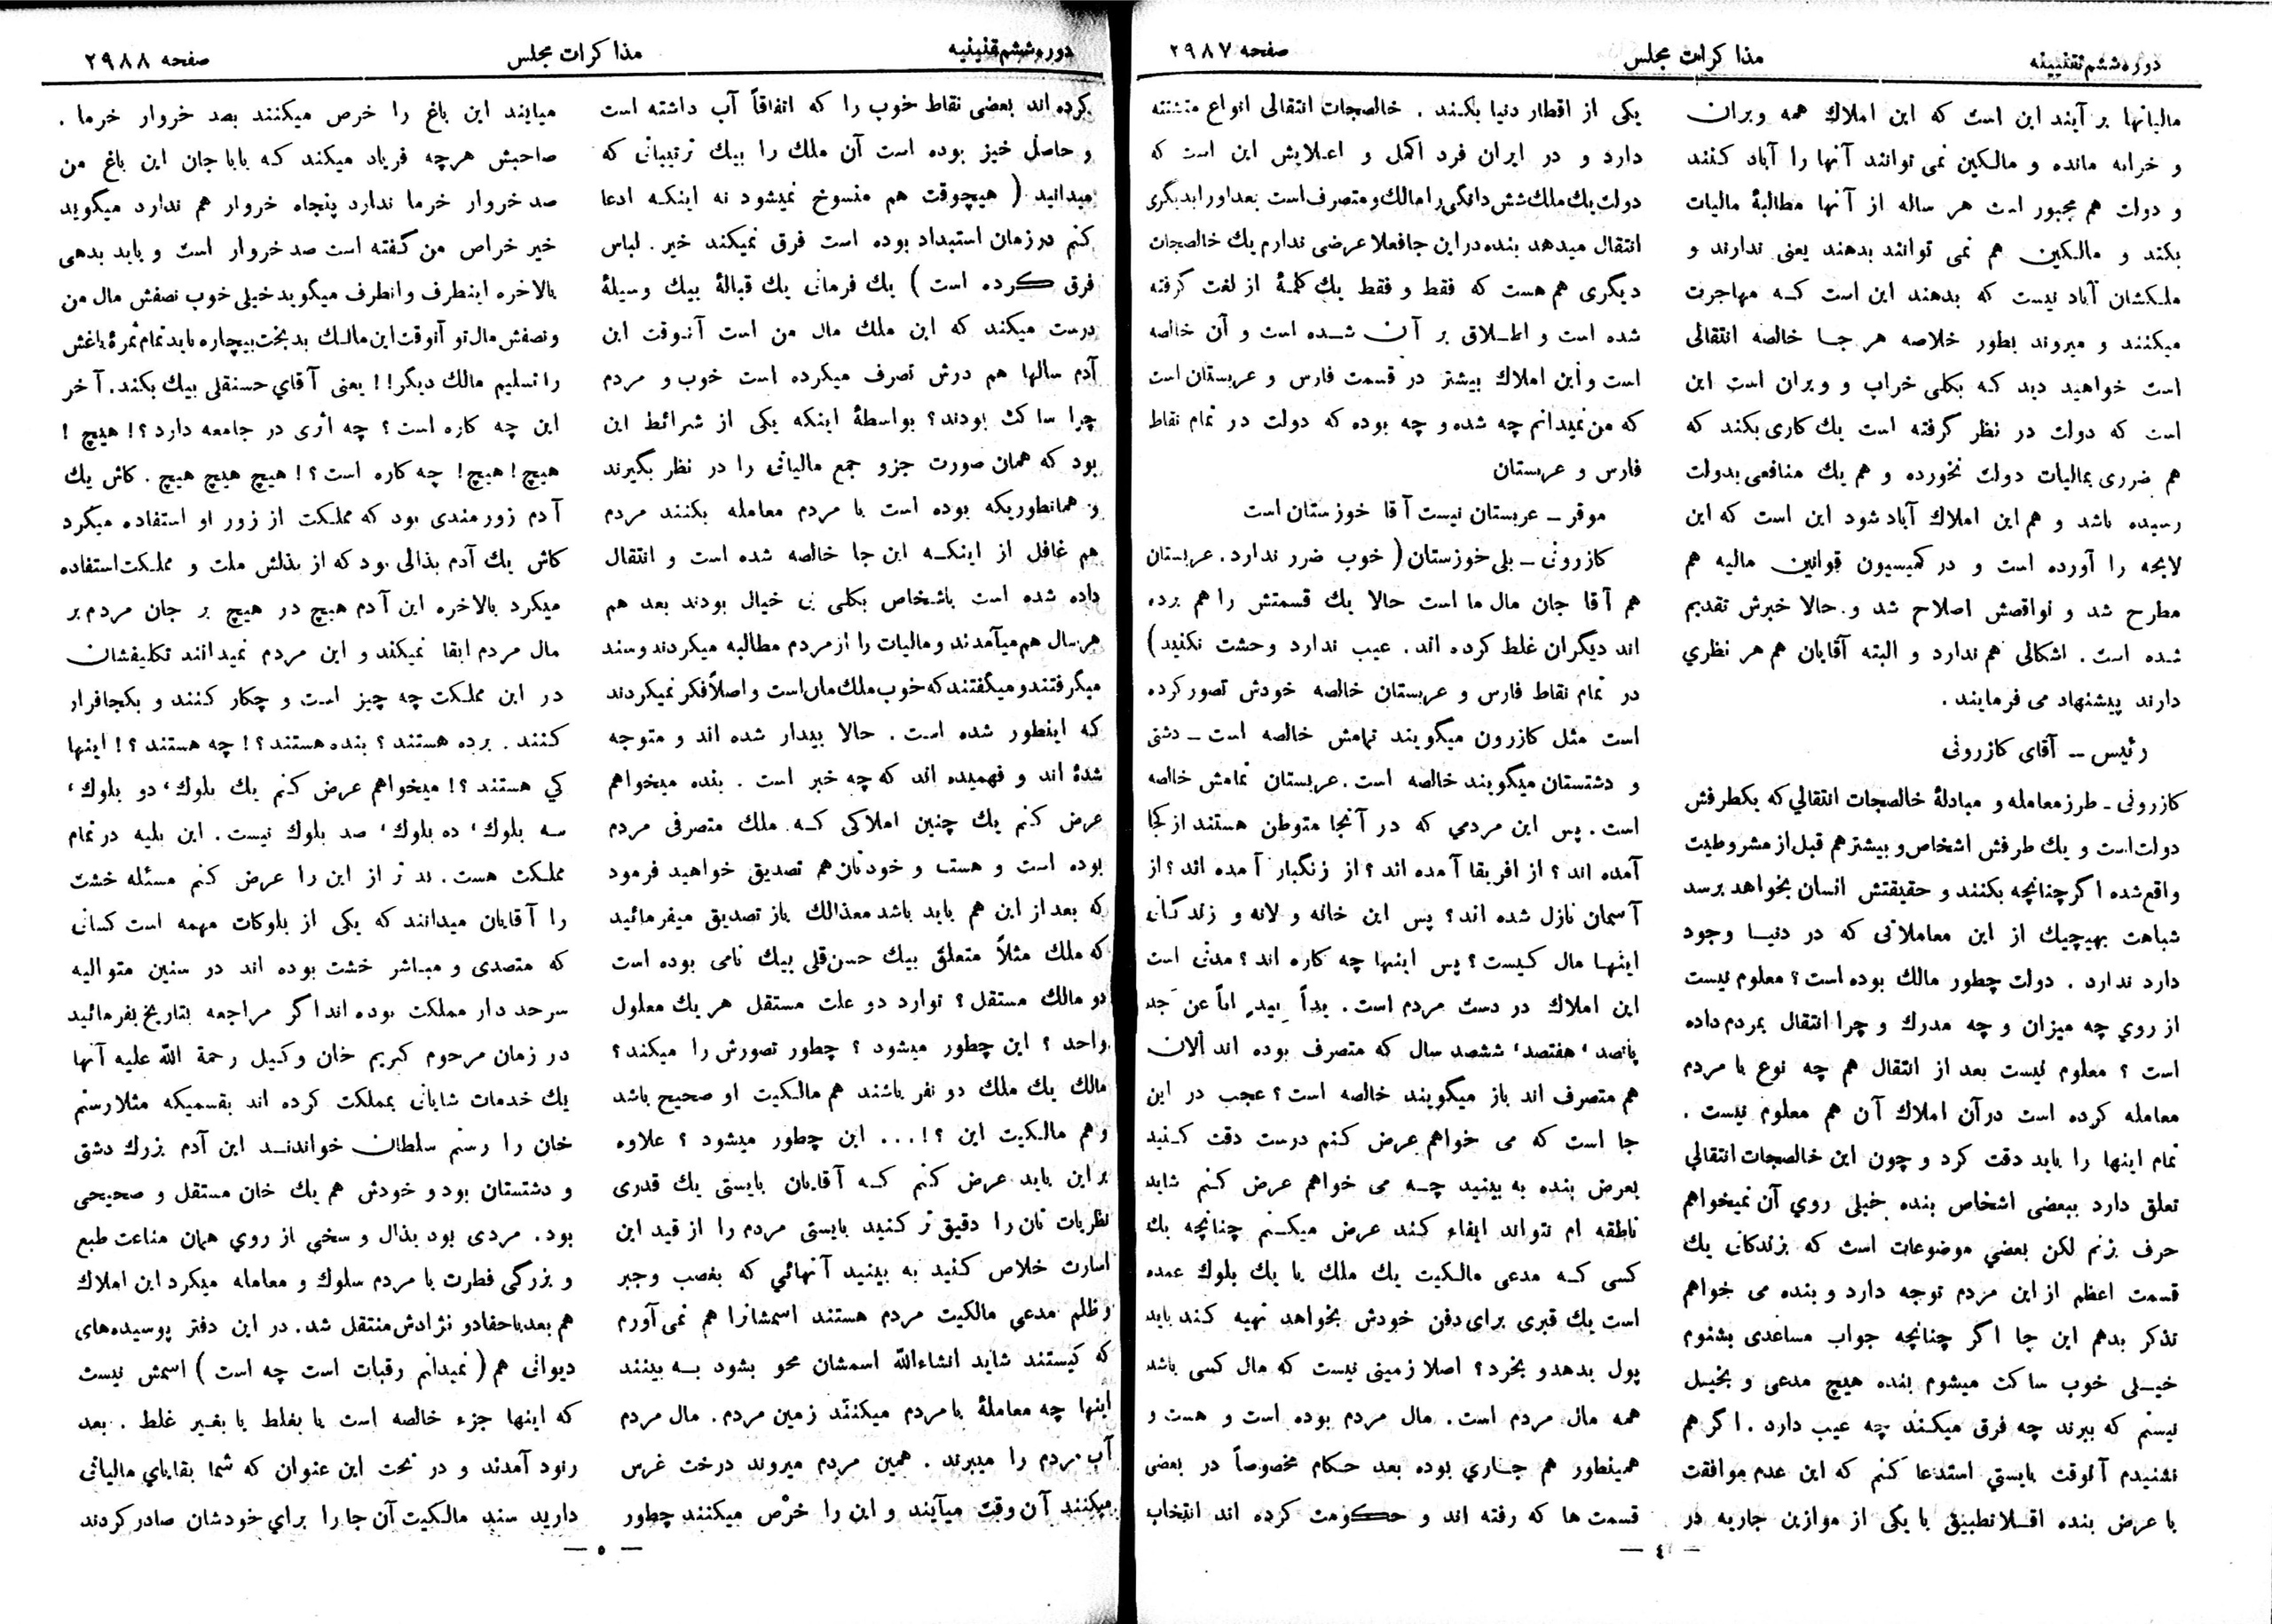 دوره ششم تقنینیه
مذاکرات مجلس
صفحه ۲۹۸۷
مالیاتها بر آیند این است که این املاك همه ویران
و خرابه مانده و مالکین نمی توانند آنها را آباد کنند
و دولت هم مجبور است هر ساله از آنها مطالبهٔ مالیات
بکند و مالکین هم نمی توانند بدهند یعنی ندارند و
ملکشان آباد نیست که بدهند این است که مهاجرت
میکنند و میروند بطور خلاصه هر جا خالصه انتقالی
است خواهید دید که بکلی خراب و ویران است این
است که دولت در نظر گرفته است یك کاری بکند که
هم ضرری بمالیات دولت نخورده و هم یك منافعی بدولت
رسیده باشد و هم این املاك آباد شود این است که این
لایحه را آورده است و در کمیسیون قوانین مالیه هم
مطرح شد و نواقصش اصلاح شد و حالا خبرش تقدیم
شده است . اشکالی هم ندارد و البته آقایان هم هر نظری
دارند پیشنهاد می فرمایند .
رئیس ـ آقای کازرونی
کازرونی ـ طرز معامله و مبادلهٔ خالصجات انتقالی که یکطرفش
دولت است و یك طرفش اشخاص و بیشتر هم قبل از مشروطیت
واقع شده اگر چنانچه بکنند و حقیقتش انسان بخواهد برسد
شباهت بهیچیك از این معاملاتی که در دنیا وجود
دارد ندارد . دولت چطور مالك بوده است ؟ معلوم نیست
از روي چه میزان و چه مدرك و چرا انتقال بمردم داده
است ؟ معلوم نیست بعد از انتقال هم چه نوع با مردم
معامله کرده است در آن املاك آن هم معلوم نیست .
تمام اینها را باید دقت کرد و چون این خالصجات انتقالي
تعلق دارد ببعضی اشخاص بنده خیلی روي آن نمیخواهم
حرف بزنم لکن بعضي موضوعات است که بزندکانی یك
قسمت اعظم از این مردم توجه دارد و بنده می خواهم
تذکر بدهم این جا اگر چنانچه جواب مساعدی بشنوم
خیلی خوب ساکت میشوم بنده هیچ مدعی و بخیل
نیستم که ببرند چه فرق میکند چه عیب دارد . اگر هم
نشنیدم آنوقت بایستي استدعا کنم که این عدم موافقت
با عرض بنده اقلا تطبیق با یکی از موازین جاریه در
یکی از اقطار دنیا بکنند . خالصجات انتقالی انواع متشتته
دارد و در ایران فرد اکمل و اعلایش این است که
دولت یك ملك شش دانگی را مالك و متصرف است بعد اورا بدیگری
انتقال میدهد بنده در این جا فعلا عرضی ندارم یك خالصجات
دیگری هم هست که فقط و فقط یك کلمهٔ از لغت گرفته
شده است و اطلاق بر آن شده است و آن خالصه
است و این املاك بیشتر در قسمت فارس و عربستان است
که من نمیدانم چه شده و چه بوده که دولت در تمام نقاط
فارس و عربستان
موقر ـ عربستان نیست آقا خوزستان است
کازرونی ـ بلی خوزستان ( خوب ضرر ندارد . عربستان
هم آقا جان مال ما است حالا یك قسمتش را هم برده
اند دیگران غلط کرده اند . عیب ندارد وحشت نکنید )
در تمام نقاط فارس و عربستان خالصه خودش تصور کرده
است مثل کازرون میگویند تمامش خالصه است ـ دشتی
و دشتستان میگویند خالصه است . عربستان تمامش خالصه
است . پس این مردمي که در آنجا متوطن هستند از کجا
آمده اند ؟ از افریقا آمده اند ؟ از زنگبار آمده اند ؟ از
آسمان نازل شده اند ؟ پس این خانه و لانه و زندکانی
اینها مال کیست ؟ پس اینها چه کاره اند ؟ مدتی است
این املاك در دست مردم است . یداً بیدٍ اباً عن جد
پانصد ، هفتصد ، ششصد سال که متصرف بوده اند الان
هم متصرف اند باز میگویند خالصه است ؟ عجب در این
جا است که می خواهم عرض کنم درست دقت کنید
بعرض بنده به بینید چه می خواهم عرض کنم شاید
ناطقه ام نتواند ایفاء کند عرض میکنم چنانچه یك
کسی که مدعی مالکیت یك ملك یا یك بلوك عمده
است یك قبری برای دفن خودش بخواهد تهیه کند باید
پول بدهد و بخرد ؟ اصلا زمینی نیست که مال کسی باشد
همه مال مردم است . مال مردم بوده است و هست و
همینطور هم جاري بوده بعد حکام مخصوصاً در بعضی
قسمت ها که رفته اند و حکومت کرده اند انتخاب
— ٤ —
دوره ششم تقنینیه
مذاکرات مجلس
صفحه ۲۹۸۸
کرده اند بعضی نقاط خوب را که اتفاقاً آب داشته است
و حاصل خیز بوده است آن ملك را بیك ترتیباتی که
میدانید ( هیچوقت هم منسوخ نمیشود نه اینکه ادعا
کنم در زمان استبداد بوده است فرق نمیکند خیر . لباس
فرق کرده است ) یك فرمانی یك قبالهٔ بیك وسیلهٔ
درست میکند که این ملك مال من است آنوقت این
آدم سالها هم درش تصرف میکرده است خوب و مردم
چرا ساکت بودند ؟ بواسطهٔ اینکه یکی از شرائط این
بود که همان صورت جزو جمع مالیاتی را در نظر بگیرند
و همانطوریکه بوده است با مردم معامله بکنند مردم
هم غافل از اینکه این جا خالصه شده است و انتقال
داده شده است باشخاص بکلی بی خیال بودند بعد هم
هر سال هم میآمدند و مالیات را از مردم مطالبه میکردند و سند
میگرفتند و میگفتند که خوب ملك مال است و اصلاً فکر نمیکردند
که اینطور شده است . حالا بیدار شده اند و متوجه
شده اند و فهمیده اند که چه خبر است . بنده میخواهم
عرض کنم یك چنین املاکی که ملك متصرفی مردم
بوده است و هست و خودتان هم تصدیق خواهید فرمود
که بعد از این هم باید باشد معذالك باز تصدیق میفرمائید
که ملك مثلاً متعلق بیك حسن قلی بیك نامی بوده است
دو مالك مستقل ؟ توارد دو علت مستقل هر یك معلول
واحد ؟ این چطور میشود ؟ چطور تصورش را میکند ؟
مالك یك ملك دو نفر باشند هم مالکیت او صحیح باشد
و هم مالکیت این ؟ ! ... این چطور میشود ؟ علاوه
بر این باید عرض کنم که آقایان بایستی یك قدری
نظریات تان را دقیق تر کنید بایستی مردم را از قید این
اسارت خلاص کنید به بینید آنهائي که بغصب و جبر
و ظلم مدعي مالکیت مردم هستند اسمشانرا هم نمی آورم
که کیستند شاید انشاءالله اسمشان محو بشود به بینند
اینها چه معاملهٔ با مردم میکنند زمین مردم . مال مردم
آب مردم را میبرند . همین مردم میروند درخت غرس
میکنند آن وقت میآیند و این را خرص میکنند چطور
میایند این باغ را خرص میکنند بصد خروار خرما .
صاحبش هرچه فریاد میکند که بابا جان این باغ من
صد خروار خرما ندارد پنجاه خروار هم ندارد میگوید
خیر خراص من گفته است صد خروار است و باید بدهی
بالاخره اینطرف و انطرف میگوید خیلی خوب نصفش مال من
و نصفش مال تو آنوقت این مالك بدبخت بیچاره باید تمام ثمرهٔ باغش
را تسلیم مالك دیگر ! ! یعنی آقاي حسنقلی بیك بکند . آخر
این چه کاره است ؟ چه اثری در جامعه دارد ؟ ! هیچ !
هیچ ! هیچ ! چه کاره است ؟ ! هیچ هیچ هیچ . کاش یك
آدم زورمندی بود که مملکت از زور او استفاده میکرد
کاش یك آدم بذالی بود که از بذلش ملت و مملکت استفاده
میکرد بالاخره این آدم هیچ در هیچ بر جان مردم بر
مال مردم ابقا نمیکند و این مردم نمیدانند تکلیفشان
در این مملکت چه چیز است و چکار کنند و بکجا فرار
کنند . برده هستند ؟ بنده هستند ؟ ! چه هستند ؟ ! اینها
کي هستند ؟ ! میخواهم عرض کنم یك بلوك ، دو بلوك ،
سه بلوك ، ده بلوك ، صد بلوك نیست . این بلیه در تمام
مملکت هست . بد تر از این را عرض کنم مسئله خشت
را آقایان میدانند که یکی از بلوکات مهمه است کسانی
که متصدی و مباشر خشت بوده اند در سنین متوالیه
سرحد دار مملکت بوده اند اگر مراجعه بتاریخ بفرمائید
در زمان مرحوم کریم خان وکیل رحمة الله علیه آنها
یك خدمات شایانی بمملکت کرده اند بقسمیکه مثلا رستم
خان را رستم سلطان خواندند این آدم بزرك دشتی
و دشتستان بود و خودش هم یك خان مستقل و صحیحی
بود . مردی بود بذال و سخی از روي همان مناعت طبع
و بزرگی فطرت با مردم سلوك و معامله میکرد این املاك
هم بعد باحفاد و نژادش منتقل شد . در این دفتر پوسیده‌های
دیوانی هم ( نمیدانم رقبات است چه است ) اسمش نیست
که اینها جزء خالصه است یا بغلط یا بغیر غلط . بعد
زنود آمدند و در تحت این عنوان که شما بقایاي مالیاتی
دارید سند مالکیت آن جا را براي خودشان صادر کردند
— ٥ —